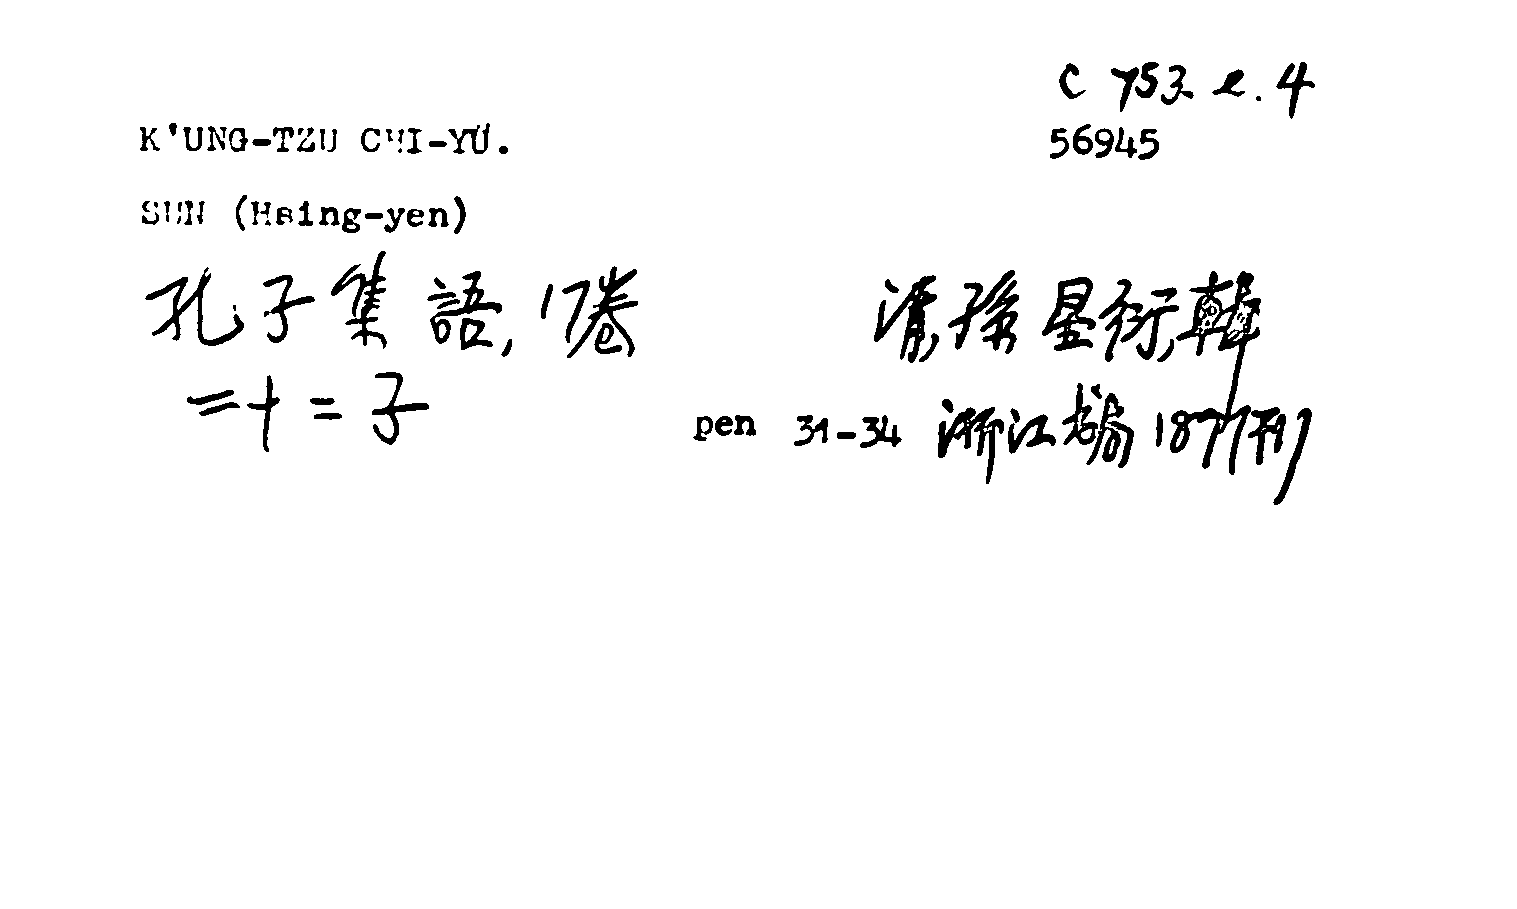 C 753.e.4
K'UNG-TZU CHI-YÜ.
56945
SUN (Hsing-yen)
孔子集語, 17卷 清孫星衍輯
二十二子 pen 31-34 浙江書局 1877刊